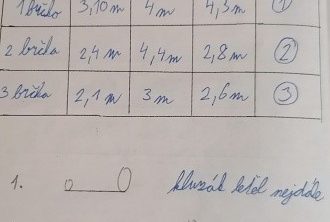 1 bříčko 3,10 m 4 m 4,5 m 1
2 bříčka 2,4 m 4,4 m 2,8 m 2
3 bříčka 2,1 m 3 m 2,6 m 3
1. kluzák letěl nejdále